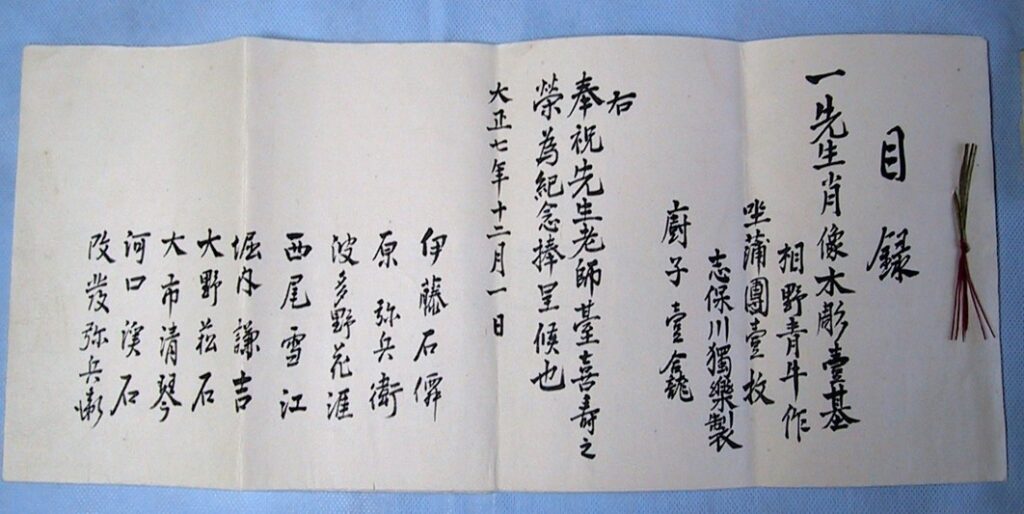 目録
一先生肖像木彫壹基
相野青牛作
坐蒲團壹枚
志保川獨樂製
廚子壹合
右
奉祝先生老師臺喜壽之
榮為紀念捧呈候也
大正七年十二月一日
伊藤石僊
原弥兵衛
波多野花涯
西尾雪江
堀内謙吉
大野菘石
大市清琴
河口溪石
改發弥兵衛